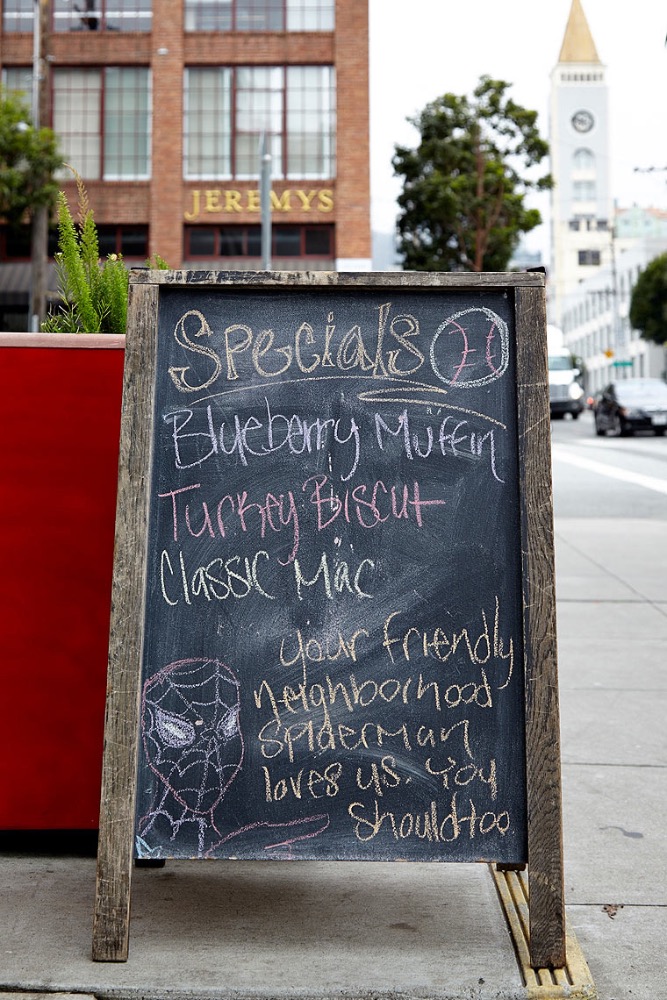 JEREMYS
Specials
Blueberry Muffin
Turkey Biscut
Classic Mac
your friendly
neighborhood
spiderman
loves us. You
Should too